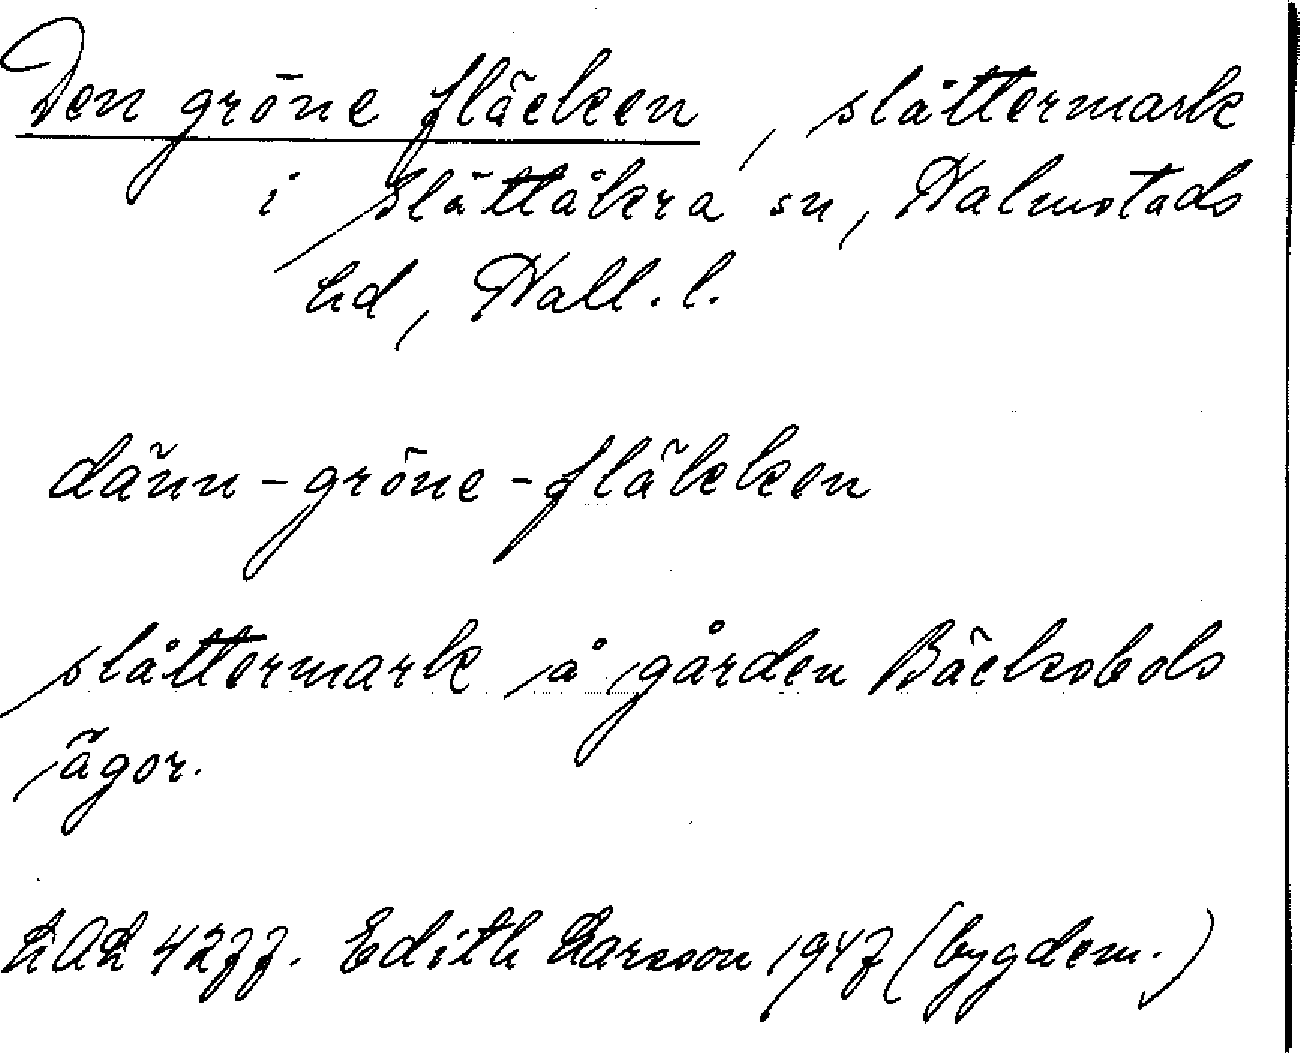 Den gröne fläcken, slåttermark
i Slättåkra sn, Halmstads
hd, Hall. l.
dänn-gröne-fläkken
slåttermark å gården Bäcksbols
ägor.
LAL 4277. Edith Larsson 1947 (bygdem.)